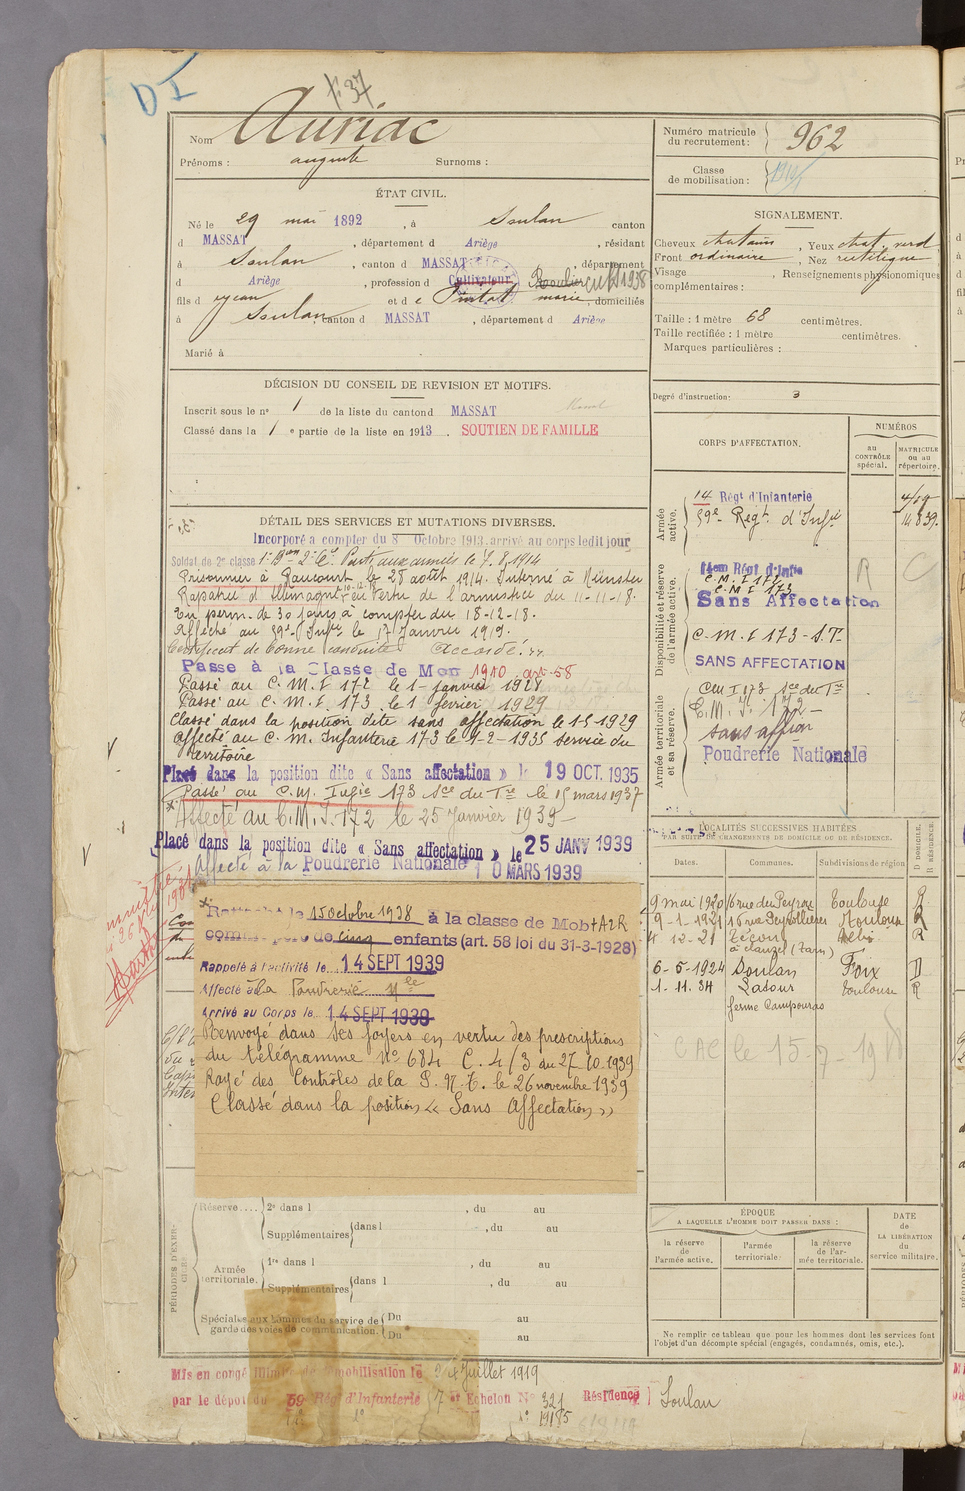 DI
F 37
Nom Auriac
Prénoms : auguste Surnoms :
ÉTAT CIVIL.
Né le 29 mai 1892 , à Soulan canton
d MASSAT , département d Ariège , résidant
à Soulan , canton d MASSAT , département
d Ariège , profession d Cultivateur Boulier cult 1938
fils d Jean et d e Pintat marie , domiciliés
à Soulan , canton d MASSAT , département d Ariège
Marié à
DÉCISION DU CONSEIL DE REVISION ET MOTIFS.
Inscrit sous le no 1 de la liste du canton d MASSAT Massat
Classé dans la 1 e partie de la liste en 1913 . SOUTIEN DE FAMILLE
DÉTAIL DES SERVICES ET MUTATIONS DIVERSES.
Incorporé a compter du 8 Octobre 1913, arrivé au corps ledit jour
Soldat de 2e classe 1er Bon 2e Cie. Parti aux armées le 7.8.1914
Prisonnier à Raucourt le 28 août 1914. Interné à Münster
Rapatrié d'Allemagne en vertu de l'armistice du 11-11-18.
En perm. de 30 jours à compter du 18-12-18.
Affecté au 59e Infie le 17 Janvier 1919.
Certificat de bonne conduite Accordé.
Passe à la Classe de Mob 1910 art-58
Passé au C.M.I 172 le 1er janvier 1928
Passé au C.M.I. 173 le 1 fevrier 1929
Classé dans la position dite sans affectation le 1-5 1929
Affecté au C.M. Infanterie 173 le 1-2-1935 service du
Territoire
Placé dans la position dite « Sans affectation » le 19 OCT. 1935
Passé au C.M. Infie 173 Sce du Tre le 15 mars 1937
Affecté au C.M.I. 172 le 25 Janvier 1939-
Placé dans la position dite « Sans affectation » le 25 JANV 1939
Affecté à la Poudrerie Nationale 10 MARS 1939
Rattaché le 15 octobre 1938 à la classe de Mob
comme père de cinq enfants (art. 58 loi du 31-3-1928)
Rappelé à l'activité le 14 SEPT 1939
Affecté à la Poudrerie Nle
Arrivé au Corps le 14 SEPT 1939
Renvoyé dans ses foyers en vertu des prescriptions
du télégramme No 684 C. 4/3 du 27.10.1939
Rayé des Contrôles de la P.N.T. le 26 novembre 1939
Classé dans la position « Sans Affectation »
PÉRIODES D'EXERCICES
Réserve.... 2e dans l , du au
Supplémentaires dans l , du au
Armée territoriale. 1re dans l , du au
Supplémentaires dans l , du au
Spéciales aux hommes du service de garde des voies de communication. Du au
Du au
Mis en congé illimité de démobilisation le 24 Juillet 1919
par le dépôt du 59 Rég d'Infanterie 7 er Echelon No 321 Résidence Soulan
No 19185
Numéro matricule du recrutement : 962
Classe de mobilisation :
SIGNALEMENT.
Cheveux chatains , Yeux chat. verd
Front ordinaire , Nez rectiligne
Visage , Renseignements physionomiques
complémentaires :
Taille : 1 mètre 68 centimètres.
Taille rectifiée : 1 mètre centimètres.
Marques particulières :
Degré d'instruction : 3
CORPS D'AFFECTATION.
NUMÉROS
au CONTRÔLE spécial.
MATRICULE ou au répertoire.
Armée active.
14 Régt d'Infanterie
59e Regt d'Infie
Disponibilité et réserve de l'armée active.
14em Régt d'Infie
C.M.I 172
C.M.I 173
Sans Affectation
R C
C.M.I 173-S.T.
SANS AFFECTATION
Armée territoriale et sa réserve.
CM I 173 Sce du Tre
C.M.I. 172-
sans affion
Poudrerie Nationale
LOCALITÉS SUCCESSIVES HABITÉES
PAR SUITE DE CHANGEMENTS DE DOMICILE OU DE RÉSIDENCE.
Dates. Communes. Subdivisions de région
D DOMICILE. R RÉSIDENCE.
9 mai 1920 16 rue du Peyrou Toulouse R
9-1-1921 16 rue Peyrolières Toulouse R
4 12-21 Técou Albi R
à clauzel (Tarn)
6-5-1924 Soulan Foix D
1-11.34 Latour Toulouse R
ferme Campouras
CAC le 15-7-19
ÉPOQUE
A LAQUELLE L'HOMME DOIT PASSER DANS :
DATE de LA LIBÉRATION du service militaire.
la réserve de l'armée active. l'armée territoriale. la réserve de l'armée territoriale.
Ne remplir ce tableau que pour les hommes dont les services font
l'objet d'un décompte spécial (engagés, condamnés, omis, etc.).